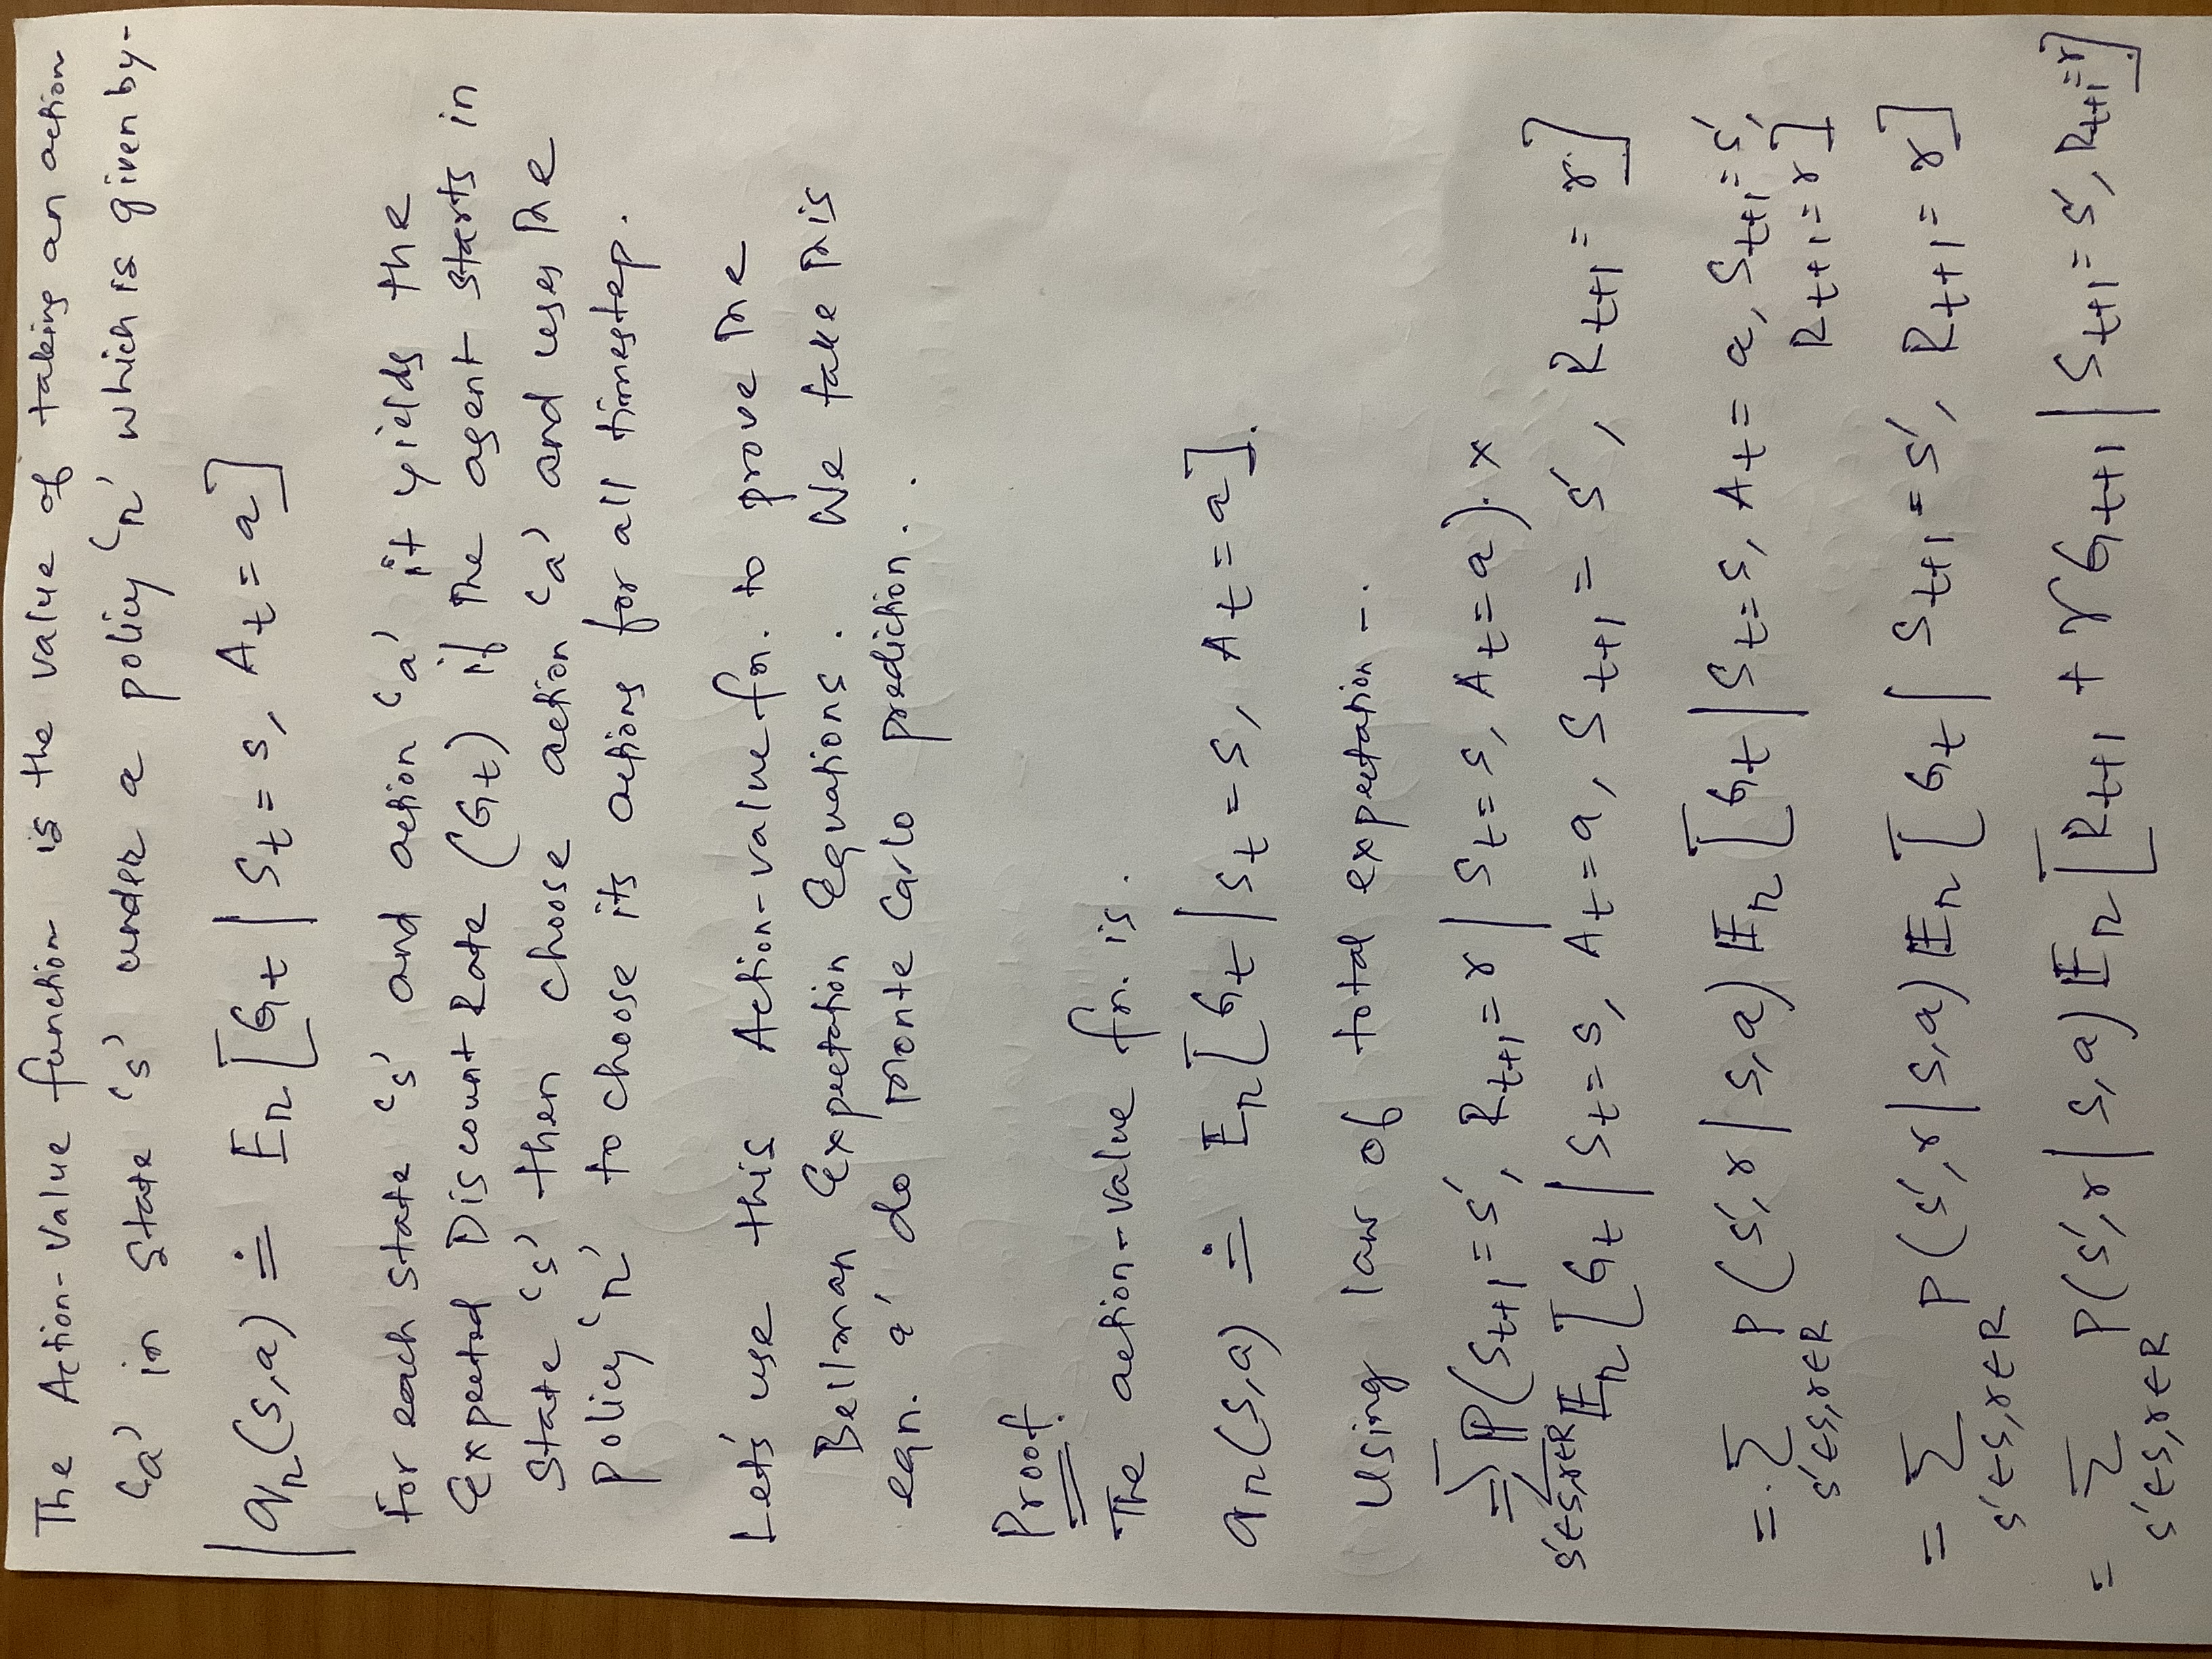 The Action-Value function is the value of taking an action
'a' in state 's' under a policy 'π' which is given by-
qπ(s,a) ≐ Eπ[Gt | St = s, At = a]
For each state 's' and action 'a' it yields the
Expected Discount Rate (Gt) if the agent starts in
state 's' then choose action 'a' and uses the
policy 'π' to choose its actions for all timestep.
Let's use this Action-value fn. to prove the
Bellman Expectation Equations. We take this
eqn. & do Monte Carlo prediction..
Proof
The action-value fn. is.
qπ(s,a) ≐ Eπ[Gt | St = s, At = a].
Using law of total expectation -.
= ∑ ℙ(St+1 = s', Rt+1 = r | St = s, At = a). x
s'∈S,r∈R 𝔼π[Gt | St = s, At = a, St+1 = s', Rt+1 = r]
= ∑ p(s',r | s,a) 𝔼π[Gt | St = s, At = a, St+1 = s',
s'∈S,r∈R Rt+1 = r]
= ∑ p(s',r | s,a) 𝔼π[Gt | St+1 = s', Rt+1 = r]
s'∈S,r∈R
= ∑ p(s',r | s,a) 𝔼π[Rt+1 + γGt+1 | St+1 = s', Rt+1 = r]
s'∈S,r∈R